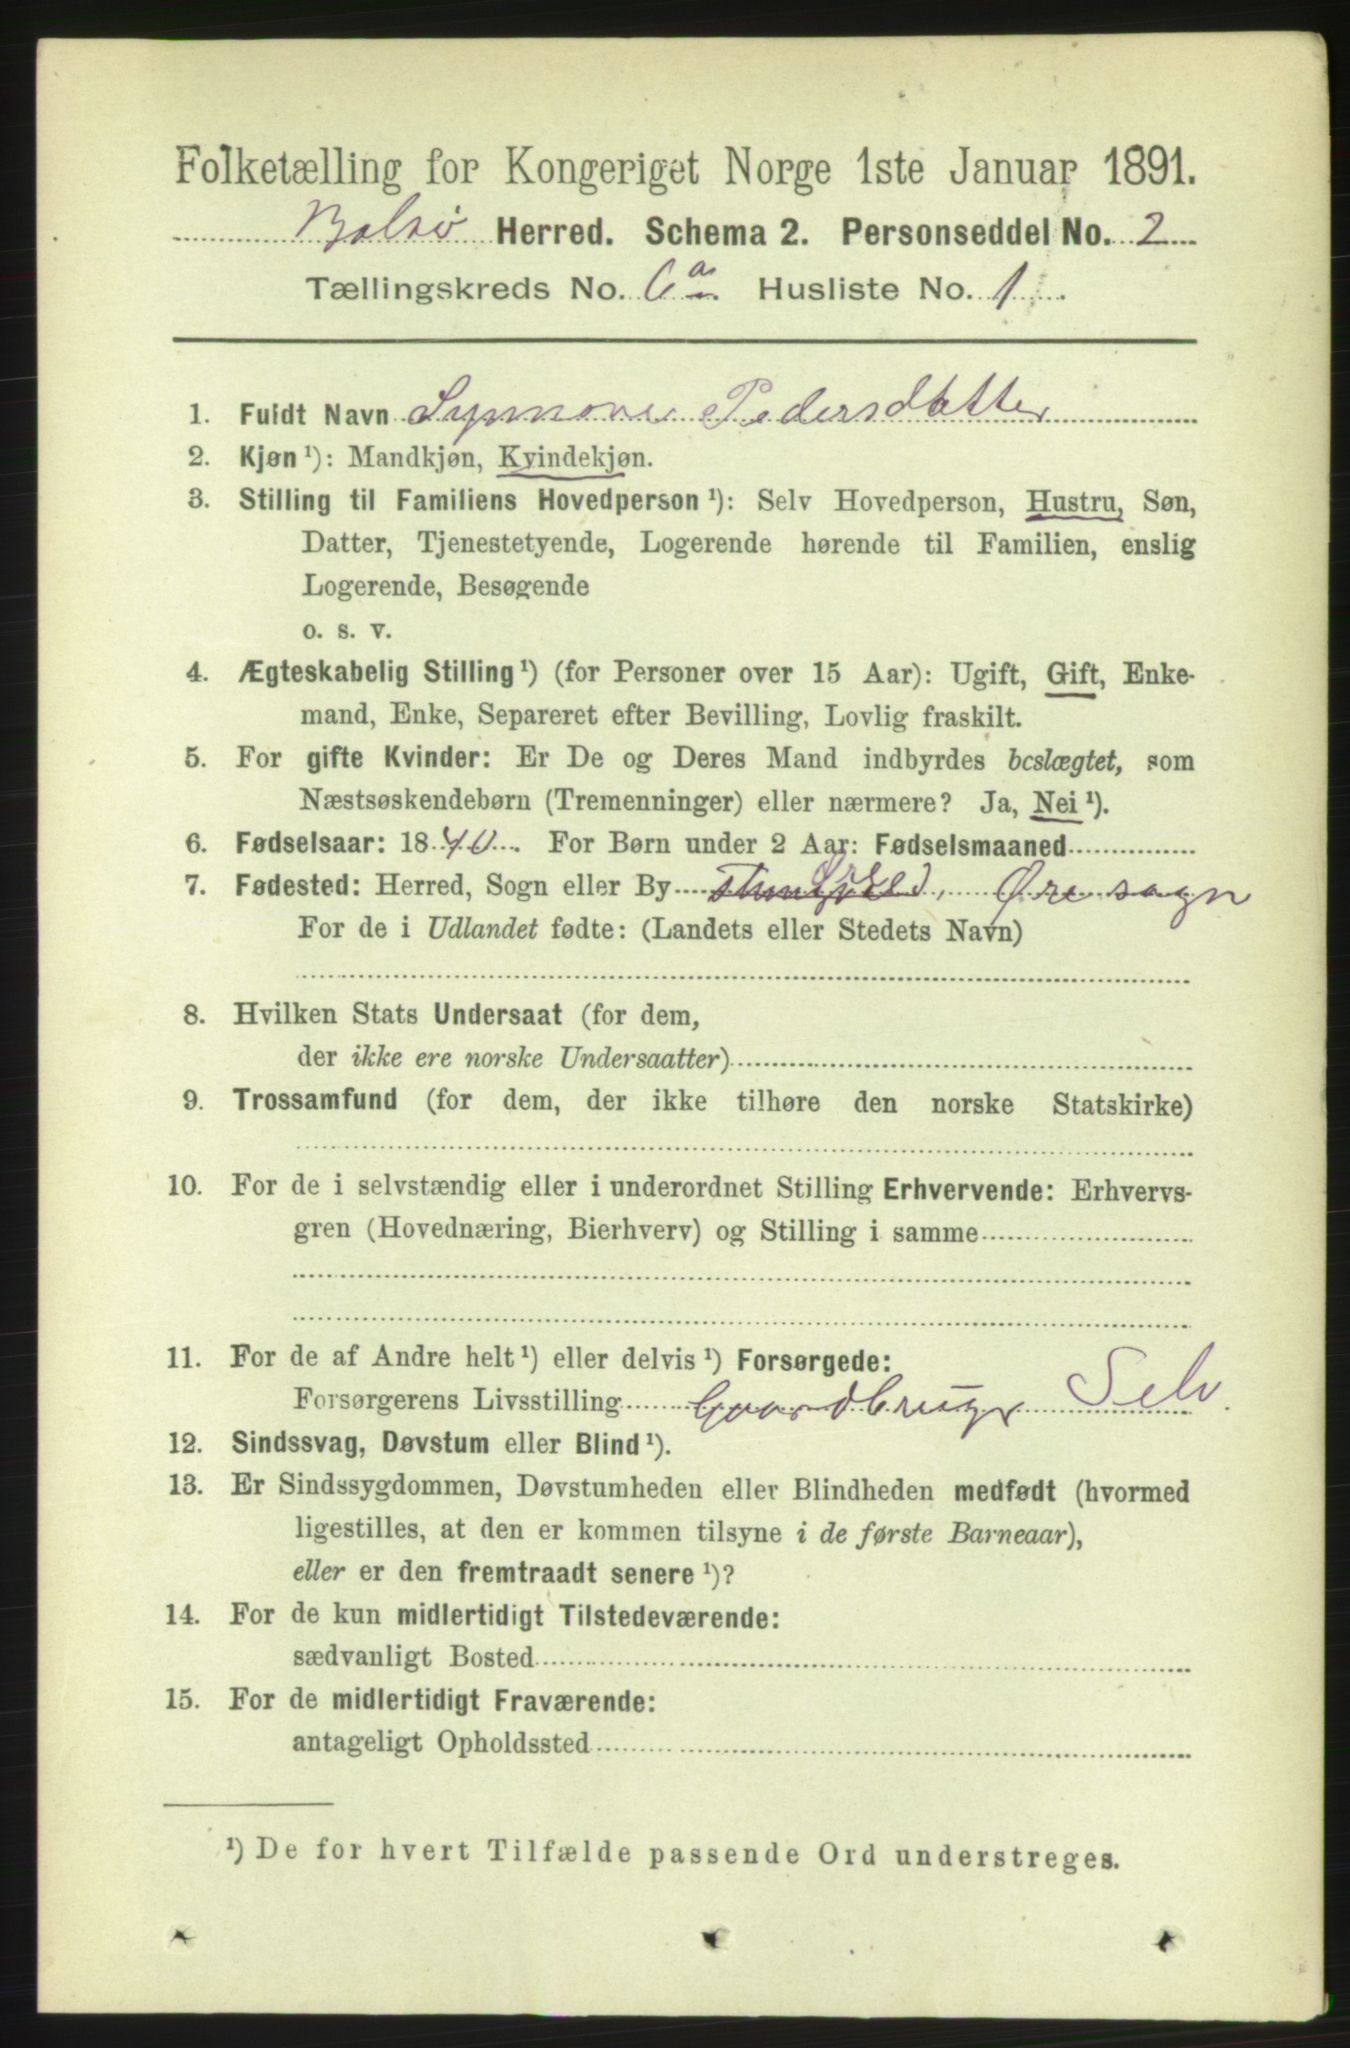 Folketælling for Kongeriget Norge 1ste Januar 1891.
Bolsø Herred. Schema 2. Personseddel No. 2
Tællingskreds No. 6a Husliste No. 1
1. Fuldt Navn Synnøve Pedersdatter
2. Kjøn ¹): Mandkjøn, Kvindekjøn.
3. Stilling til Familiens Hovedperson ¹): Selv Hovedperson, Hustru, Søn,
Datter, Tjenestetyende, Logerende hørende til Familien, enslig
Logerende, Besøgende
o. s. v.
4. Ægteskabelig Stilling ¹) (for Personer over 15 Aar): Ugift, Gift, Enke-
mand, Enke, Separeret efter Bevilling, Lovlig fraskilt.
5. For gifte Kvinder: Er De og Deres Mand indbyrdes beslægtet, som
Næstsøskendebørn (Tremenninger) eller nærmere? Ja, Nei ¹).
6. Fødselsaar: 1840. For Børn under 2 Aar: Fødselsmaaned
7. Fødested: Herred, Sogn eller By Øre sogn
For de i Udlandet fødte: (Landets eller Stedets Navn)
8. Hvilken Stats Undersaat (for dem,
der ikke ere norske Undersaatter)
9. Trossamfund (for dem, der ikke tilhøre den norske Statskirke)
10. For de i selvstændig eller i underordnet Stilling Erhvervende: Erhvervs-
gren (Hovednæring, Bierhverv) og Stilling i samme
11. For de af Andre helt ¹) eller delvis ¹) Forsørgede:
Forsørgerens Livsstilling Gaardbruger Selv.
12. Sindssvag, Døvstum eller Blind ¹).
13. Er Sindssygdommen, Døvstumheden eller Blindheden medfødt (hvormed
ligestilles, at den er kommen tilsyne i de første Barneaar),
eller er den fremtraadt senere ¹)?
14. For de kun midlertidigt Tilstedeværende:
sædvanligt Bosted
15. For de midlertidigt Fraværende:
antageligt Opholdssted
¹) De for hvert Tilfælde passende Ord understreges.